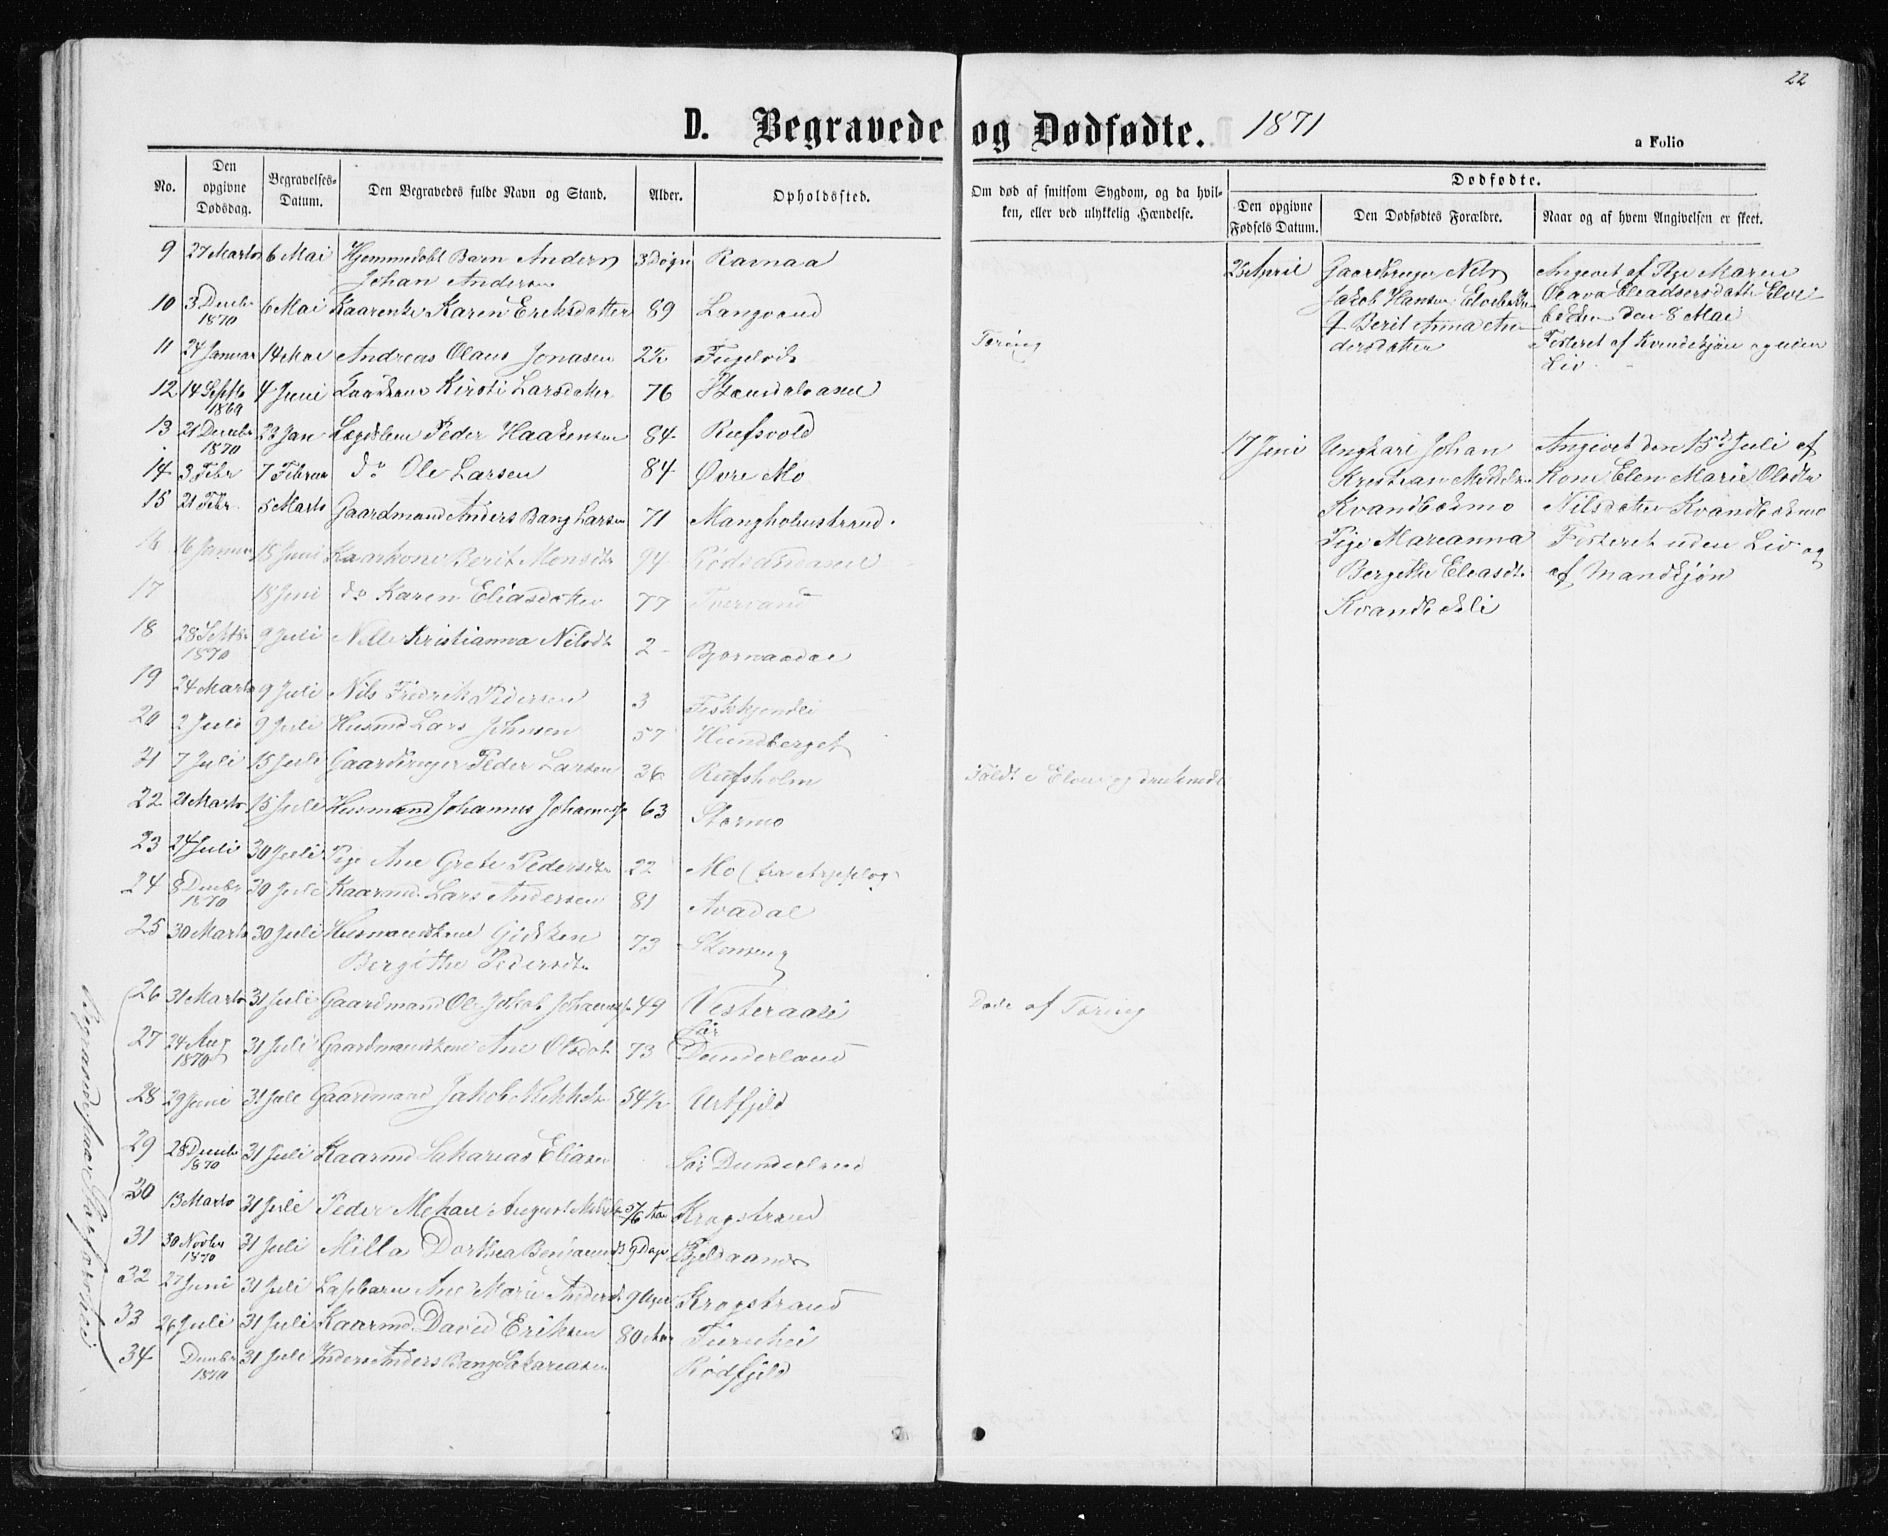 22
D. Begravede og Dødfødte. 1871
a Folio
No.
Den opgivne Dødsdag.
Begravelses-Datum.
Den Begravedes fulde Navn og Stand.
Alder.
Opholdssted.
Om død af smitsom Sygdom, og da hvilken, eller ved ulykkelig Hændelse.
Dødfødte.
Den opgivne Fødsels Datum.
Den Dødfødtes Forældre.
Naar og af hvem Angivelsen er skeet.
9 27 Marts 6 Mai Hjemmedøbt Barn Anders 3 Døgn Ramaa
Johan Andersen
10 3 Decbr 1870 6 Mai Kaarenke Karen Eriksdatter 89 Langvand
11 24 Januar 14 Mai Andreas Olaus Jonasen 2½ Fugelvik Tæring
12 14 Septb 1869 4 Juni Kirsti Larsdatter 76
13 21 Decbr 1870 22 Jan Lægdslem Peder Haakensen 84 Ræfsvold
14 3 Febr 7 Februar do Ole Larsen 84 Øvre Mo
15 21 Febr. 5 Marts Gaardmand Anders Bang Larsen 71 Mangholmstrand
16 16 Januar 18 Juni Kaarkone Berit Monsdtr 94
17 18 Juni do Karen Eliasdatter 77 Tvervand
18 28 Septb 1870 9 Juli Nelle Kristianna Nilsdt 2 Bjørnaadal
19 24 Marts 9 Juli Nils Fredrik Pedersen 3 Fiskkjendli
20 2 Juli 9 Juli Husmd Lars Johnsen 57 Hundberget
21 7 Juli 15 Juli Gaardbruger Peder Larsen 36 Ræfsholm Faldt i Elven og druknede
22 21 Marts 15 Juli Husmand Johannes Johannes 63 Stormo
23 24 Juli 30 Juli Pige Ane Grete Pedersdtr 22 Mo (fra Arjeplog)
24 8 Decbr 1870 30 Juli Kaarmd Lars Andersen 81 Avadal
25 30 Marts 30 Juli Husmandskone Gidsken 73 Skonseng
Bergithe Pedersdtr
26 31 Marts 31 Juli Gaardmand Ole Jakob Johannes 49 Vesteraali Døde af Tæring
27 24 Aug 1870 31 Juli Gaardmandskone Ane Olsdat 73 Sør Dunderland
28 29 Juni 31 Juli Gaardmand Jakob 54½ Urtfjeld
29 28 Decbr 1870 31 Juli Kaarmd Sakarias Eliasen Sør Dunderland
30 13 Marts 31 Juli Peder Mekael August 5/6 Aar Krogstrand
31 30 Novbr 1870 31 Juli Milla Dorthea 9 Dage
32 27 Juni 31 Juli Lapbarn Ane Marie Anders 9 Uger Krogstrand
33 26 Juli 31 Juli Kaarmd David Eriksen 80 Aar Furuhei
34 Decbr 1870 31 Juli Inderst Anders Bang Sakariasen Rødfjeld
25 April Gaardbruger Nils
Jakob Hansen
& Berit Anna An-
dersdatter
Angivet af Pige Maren
den 8 Mai
Fosteret af Kvindekjøn og uden
Liv.
17 Juni Ungkarl Johan
Kristian
Kvandbækmo
Pige Marianna
Bergitte Eleasdt.
Kvandbækli
Angivet den 15de Juli af
Kone Elen Marie
Nilsdatter Kvandbækmo
Fosteret uden Liv og
af Mandkjøn